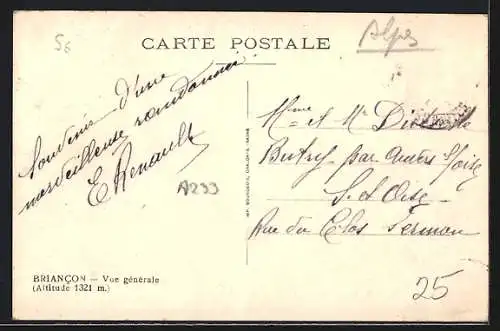 56
Alpes
CARTE POSTALE
Souvenir d'une
merveilleuse randonnée
E Renault
A233
Mme et Mr
Butry par Auvers s/oise
S. et Oise
Rue du Clos
BRIANÇON — Vue générale
(Altitude 1321 m.)
25